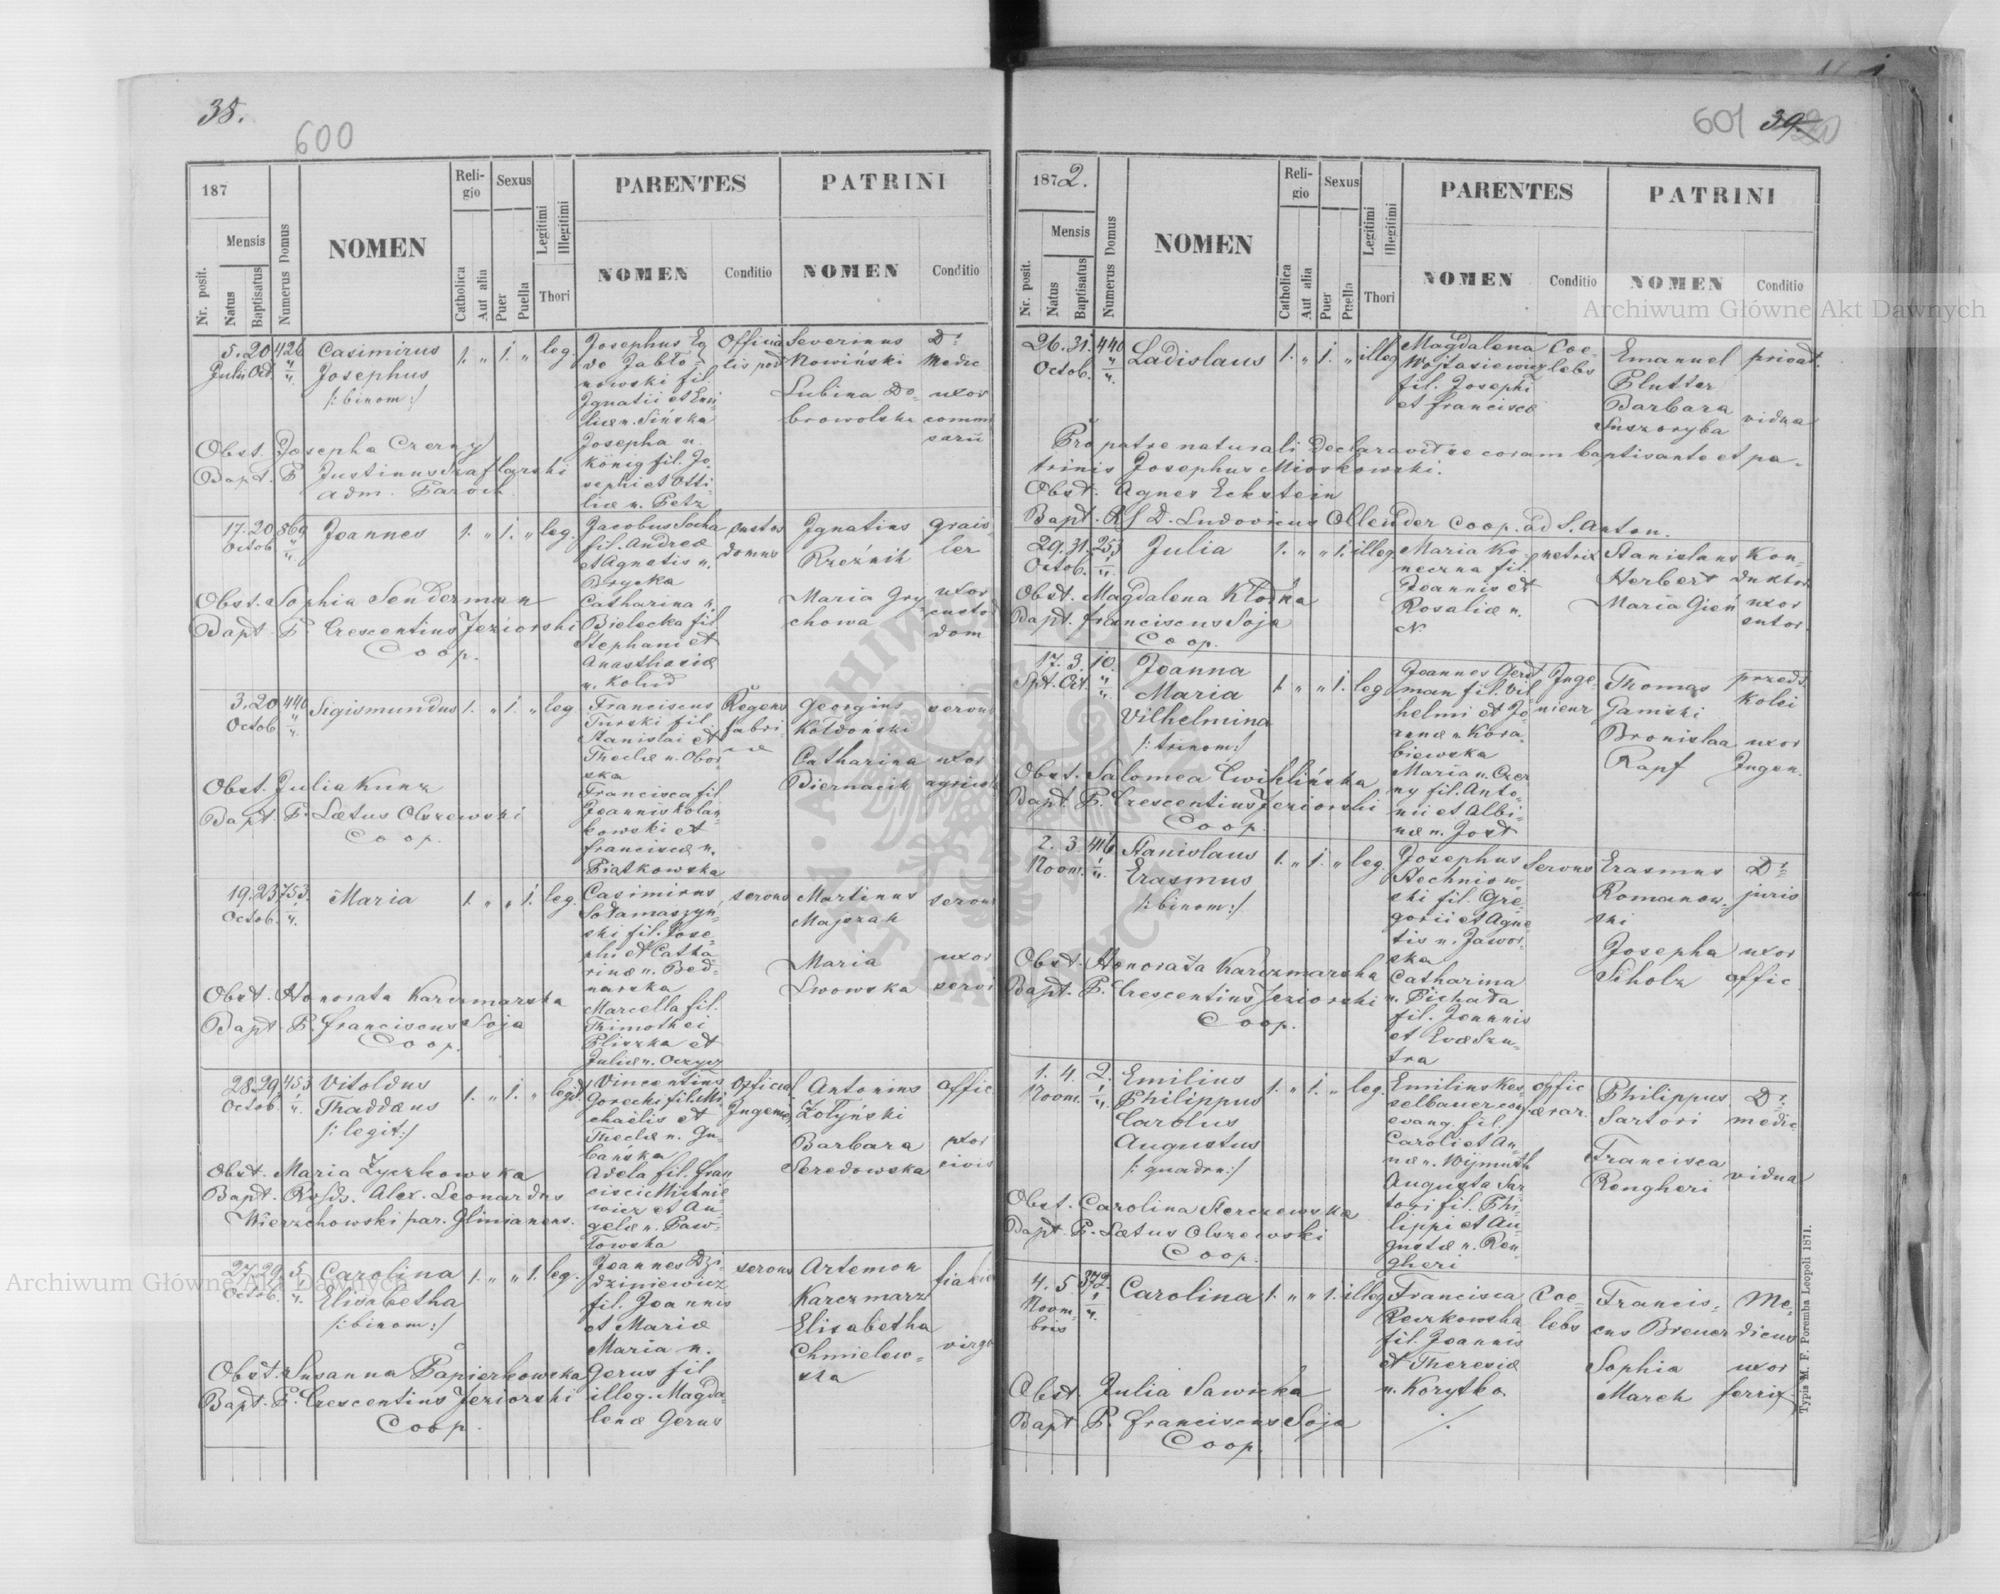 38.
600
187
Nr. posit.
Mensis
Natus
Baptisatus
Numerus Domus
NOMEN
Religio
Catholica
Aut alia
Sexus
Puer
Puella
Legitimi
Illegitimi
Thori
PARENTES
NOMEN
Conditio
PATRINI
NOMEN
Conditio
5. 20 426
Julii Oct.
Casimirus
Josephus
/: binom :/
1. " 1. " leg.
Josephus Eq
de Jabło
nowski fil.
Ignatii et Emi
liæ n. Sińska
Josepha n.
König fil. Jo
sephi et Otti
liæ n. Petz
Severinus
Nowiński
Dr
Medic
Lubina Do
browolska
uxor
commi
sarii
Obst. Josepha Czerny
Bapt. P. Justinus Szaflarski
Adm. Paroch.
17. 20 869
Octob.
Joannes
1. " 1. " leg.
Jacobus Socha
fil. Andreæ
et Agnetis n.
Brycka
Catharina n.
Bielecka fil
Stephani et
Anasthasiæ
n. Kolud
custos
domus
Ignatius
Rzeźnik
grais
ler
Maria Gry
chowa
uxor
custod
dom
Obst. Sophia Senderman
Bapt. P. Crescentius Jeziorski
Coop.
3. 20 440
Octob.
Sigismundus 1. " 1. " leg
Franciscus
Turski fil.
Stanislai et
Theclæ n. Obor
ska
Francisca fil
Joannis Kolan
kowski et
Franciscæ n.
Piątkowska
Regens
fabri
cæ
Georgius
Kołdoński
servus
Catharina
Biernacik
uxor
Obst. Julia Kunz
Bapt. P. Lætus Olszewski
Coop.
19. 23. 753.
Octob.
Maria
1. " " 1. leg.
Casimirus
Sołamaszyn
ski fil. Jose
phi et Catha
rinæ n. Bed
narska
Marcella fil.
Thimothei
Pliszka et
Juliæ n.
servus
Martinus
Majzak
servus
Maria
Lwowska
uxor
servi
Obst. Honorata Karczmarska
Bapt. P. Franciscus Soja
Coop.
28. 29. 453
Octob.
Vitoldus
Thaddæus
/: legit :/
1. " 1. " legit.
Vincentius
Gorecki fil. Mi
chaelis et
Theclæ n. Gu
bańska
Adela fil. Fran
cisci Michnie
wicz et An
gelæ n. Paw
łowska
Official
Ingenier
Antonius
Żołyński
offic
Barbara
Seredowska
uxor
civis
Obst. Maria Życzkowska
Bapt. Rssds. Alex. Leonardus
Wierzchowski par. Glinianens.
27. 29. 5.
Octob.
Carolina
Elisabetha
/: binom :/
1. " " 1. leg.
Joannes Dzi
dziniewicz
fil. Joannis
et Mariæ
Maria n.
Gerus fil
illeg. Magda
lenæ Gerus
servus
Artemon
Karczmarz
fiaker
Elisabetha
Chmielew-
ska
virgo
Obst. Susanna Papierkowska
Bapt. P. Crescentius Jeziorski
Coop.
601 39.
1872.
Nr. posit.
Mensis
Natus
Baptisatus
Numerus Domus
NOMEN
Religio
Catholica
Aut alia
Sexus
Puer
Puella
Legitimi
Illegitimi
Thori
PARENTES
NOMEN
Conditio
PATRINI
NOMEN
Conditio
26. 31. 440
Octob.
Ladislaus
1. " 1. " illeg
Magdalena
Wojtasiewicz
fil. Josephi
et Franciscæ
Coe-
lebs
Emanuel
Plutter
privat.
Barbara
Suszoryba
vidua
Pro patre naturali declaravit se coram baptisante et pa-
trinis Josephus Mioskowski.
Obst. Agnes Eckstein
Bapt. Rss D. Ludovicus Ollender Coop. ad S. Anton.
29. 31. 253
Octob.
Julia
1. " " 1. illeg.
Maria Ko-
neczna fil.
Joannis et
Rosaliæ n.
N.
Stanislaus
Herbert
Kon-
duktor
Maria Gień
uxor
sutor.
Obst. Magdalena Kłoska
Bapt. Franciscus Soja
Coop.
17. 3. 10.
Spt. Oct.
Joanna
Maria
Vilhelmina
/: trinom :/
1. " " 1. leg.
Joannes Gerd
man fil. Vil
helmi et Jo
annæ n. Kora
biewska
Maria n. Czer
ny fil. Anto-
nii et Albi-
næ n. Jost
Inge-
nieur
Thomas
Gamski
przeds.
Kolei
Bronislaa
Rapf
uxor
Ingen.
Obst. Salomea Ćwiklińska
Bapt. P. Crescentius Jeziorski
Coop.
2. 3. 416
Novm.
Stanislaus
Erasmus
/: binom :/
1. " 1. " leg.
Josephus
Stechniow-
ski fil. Gre-
gorii et Agne-
tis n. Jawor-
ska
Catharina
n. Pichała
fil. Joannis
et Evæ Szu-
tra
Servus
Erasmus
Romanow-
ski
Dr
juris
Josepha
Scholz
uxor
offic
Obst. Honorata Karczmarska
Bapt. P. Crescentius Jeziorski
Coop.
1. 4. 2.
Novm.
Emilius
Philippus
Carolus
Augustus
/: quadrn :/
1. " 1. " leg.
Emilius Kes-
selbauer con
evang. fil.
Caroli et An-
næ n. Wijmuth
Augusta Sar
tori fil. Phi-
lippi et Au-
gustæ n. Ren-
gheri
offic
ærar.
Philippus
Sartori
Dr
medic
Francisca
Rengheri
vidua
Obst. Carolina Sterczewska
Bapt. P. Lætus Olszewski
Coop.
4. 5. 372.
Novm-
bris
Carolina
1. " " 1. illeg
Francisca
Reczkowska
fil. Joannis
et Theresiæ
n. Korytko
Coe-
lebs
Francis-
cus Breuer
Me-
dicus
Sophia
March
uxor
ferrif.
Obst. Julia Sawicka
Bapt P. Franciscus Soja
Coop.
Typis M. F. Poremba Leopoli 1871.
Archiwum Główne Akt Dawnych
Archiwum Główne Akt Dawnych